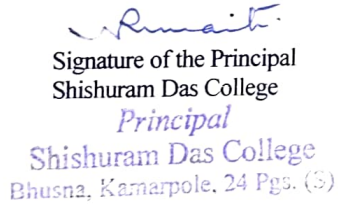 Signature of the Principal
Shishuram Das College
Principal
Shishuram Das College
Bhusna, Kamarpole, 24 Pgs. (S)